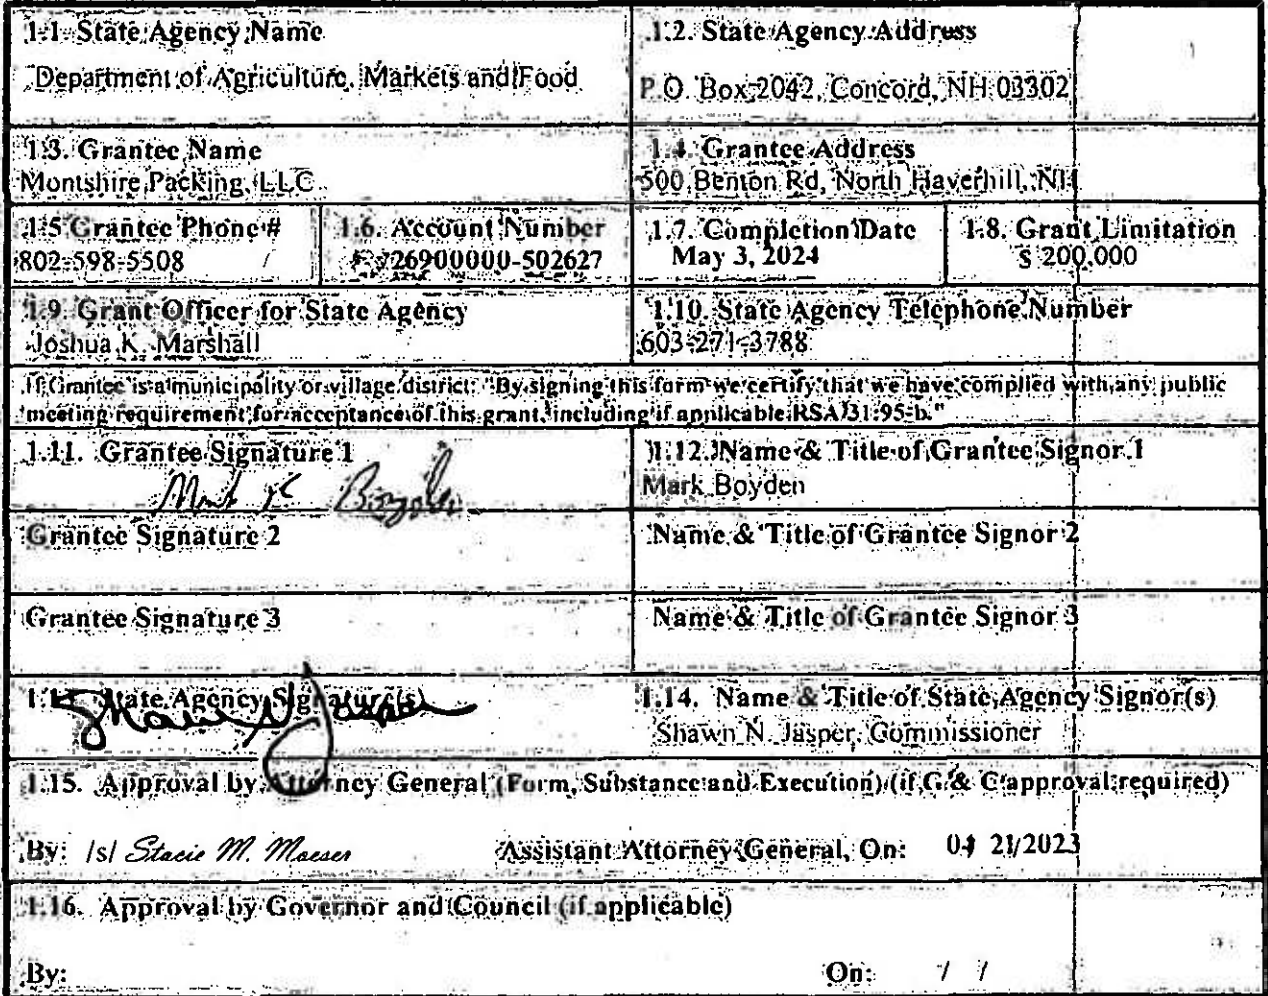 1.1. State Agency Name
Department of Agriculture, Markets and Food
1.2. State Agency Address
P.O. Box 2042, Concord, NH 03302
1.3. Grantee Name
Montshire Packing, LLC
1.4. Grantee Address
500 Benton Rd, North Haverhill, NH
1.5 Grantee Phone #
802-598-5508
1.6. Account Number
26900000-502627
1.7. Completion Date
May 3, 2024
1.8. Grant Limitation
$ 200,000
1.9. Grant Officer for State Agency
Joshua K. Marshall
1.10. State Agency Telephone Number
603-271-3788
If Grantee is a municipality or village district: "By signing this form we certify that we have complied with any public
meeting requirement for acceptance of this grant, including if applicable RSA 31:95-b."
1.11. Grantee Signature 1
1.12. Name & Title of Grantee Signor 1
Mark Boyden
Grantee Signature 2
Name & Title of Grantee Signor 2
Grantee Signature 3
Name & Title of Grantee Signor 3
State Agency Signature(s)
Shawn N. Jasper
1.14. Name & Title of State Agency Signor(s)
Shawn N. Jasper, Commissioner
1.15. Approval by Attorney General (Form, Substance and Execution) (if G. & C approval required)
By: /s/ Stacie M. Moeser Assistant Attorney General, On: 04 21/2023
1.16. Approval by Governor and Council (if applicable)
By: On: / /